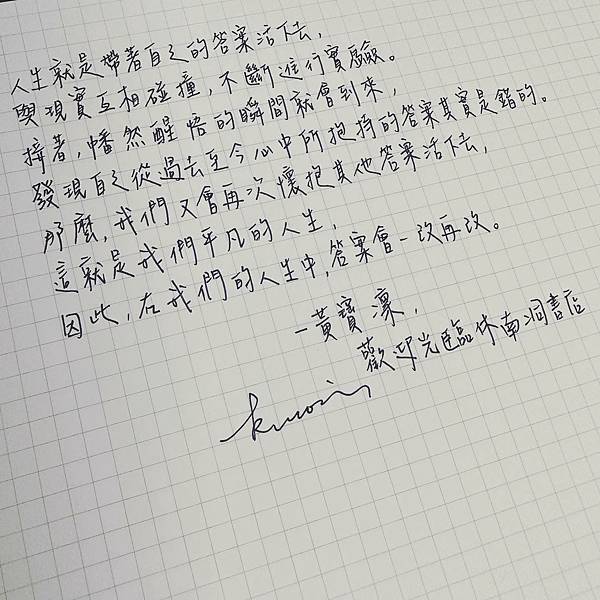 人生就是帶著自己的答案活下去,
與現實互相碰撞,不斷進行實驗。
接著,幡然醒悟的瞬間就會到來,
發現自己從過去至今心中所抱持的答案其實是錯的。
那麼,我們又會再次懷抱其他答案活下去,
這就是我們平凡的人生,
因此,在我們的人生中,答案會一改再改。
—黃寶凜,
歡迎光臨休南洞書店